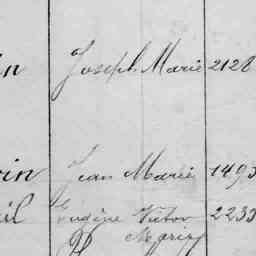 in Joseph Marie 2128
in Jean Marie 1493
il Eugène Victor 2233
Marie